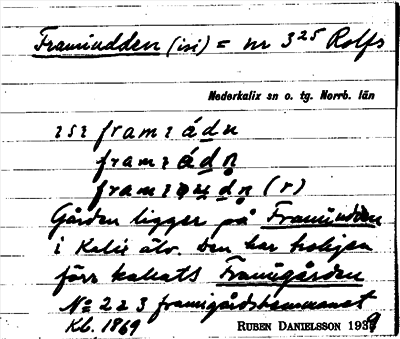 Framiudden (isi) = nr 3²⁵ Rolfs
Nederkalix sn o. tg. Norrb. län
framı
framı
framı (r)
Gården ligger på Framiudden
i Kalix älv. Den har troligen
förr kallats Framigården
No 2 a 3 framigårdshemmanet
Kb. 1869 RUBEN DANIELSSON 1939